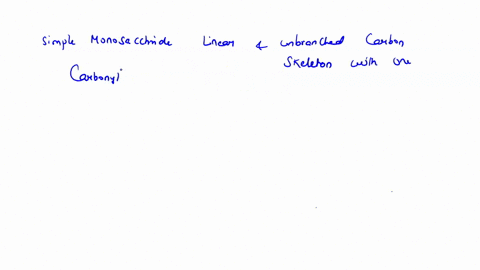 Simple Monosacchride Linear & unbranched Carbon
Skeleton with one
Carbonyl